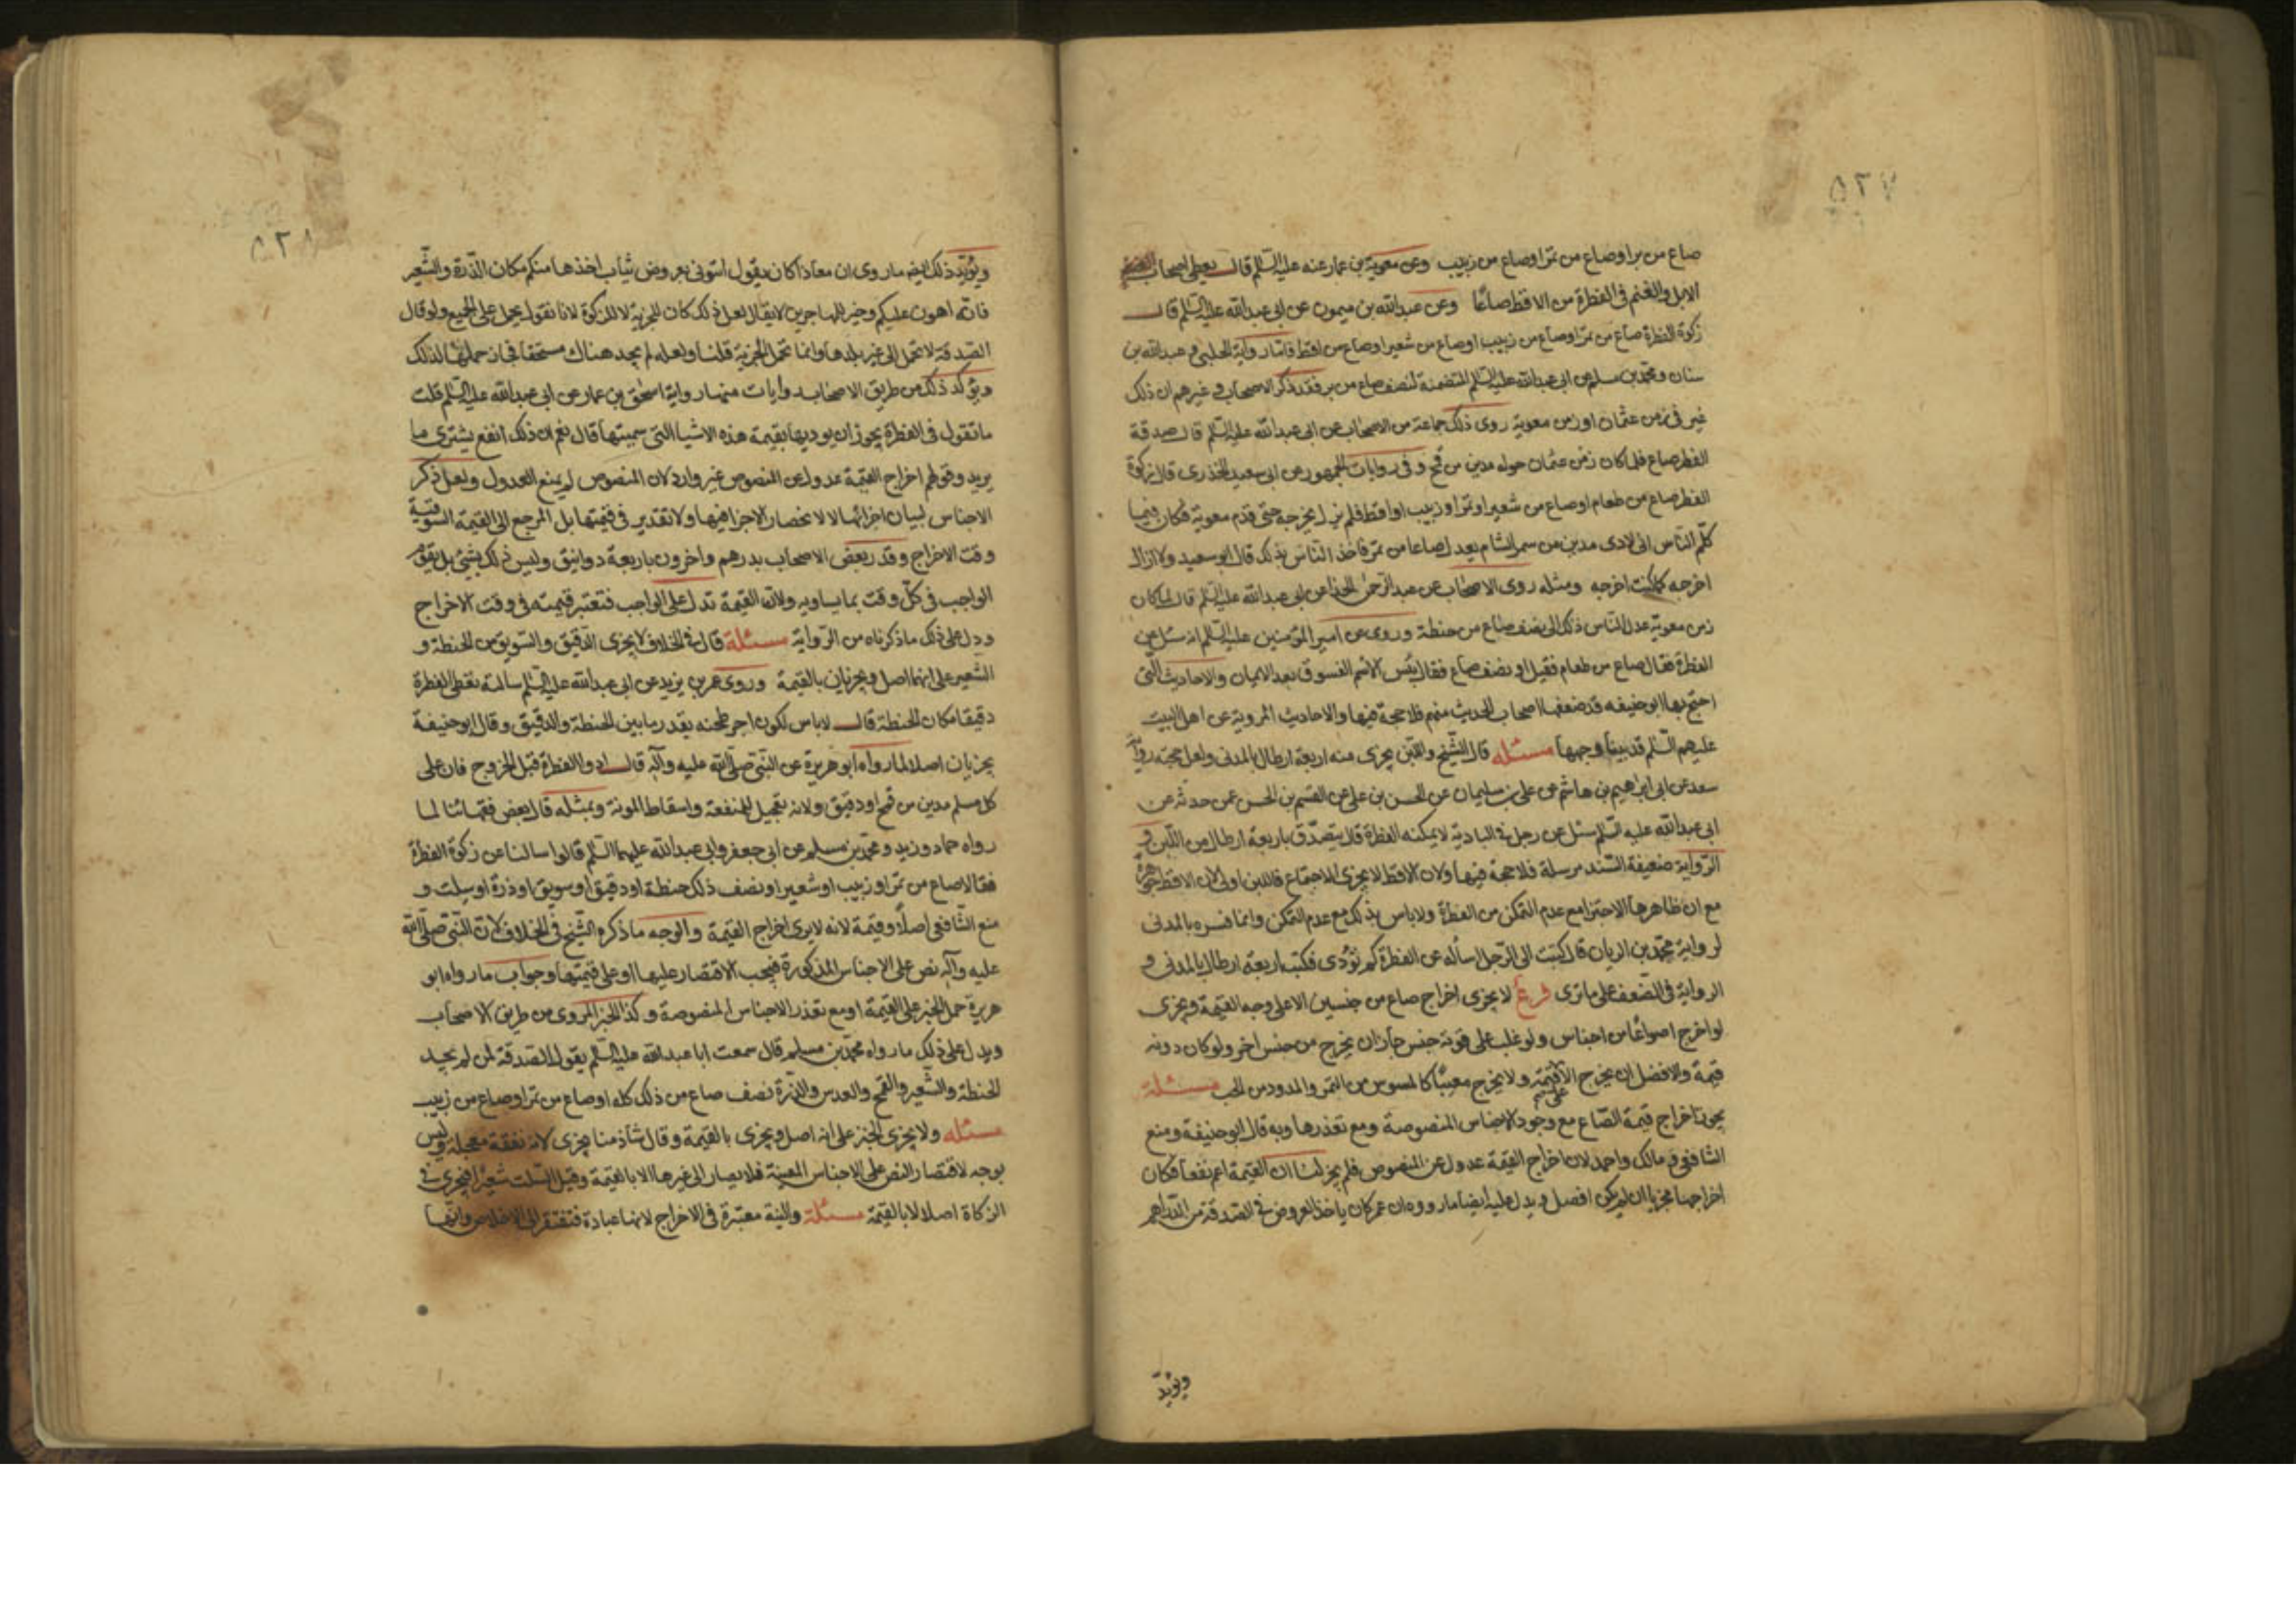 ٥٢٧
صاع من بر او صاع من تمر او صاع من زبيب وعن معوية بن عمار عنه عليه السلم قال يعطى اصحاب
الابل والغنم فى الفطرة من الاقط صاعًا وعن عبد الله بن ميمون عن ابى عبد الله عليه السلم قال
زكوة الفطرة صاع من تمر او صاع من زبيب او صاع من شعير او صاع من اقط فاما رواية الحلبى و عبد الله بن
سنان ومحمد بن مسلم عن ابى عبد الله عليه السلم المتضمنة لنصف صاع من بر فقد ذكر الاصحاب و غيرهم ان ذلك
غير فى زمن عثمان او زمن معوية روى ذلك جماعة من الاصحاب عن ابى عبد الله عليه السلم قال صدقة
الفطر صاع فلما كان زمن عثمان حوله مدين من قمح و فى روايات الجمهور عن ابى سعيد الخدرى قال زكوة
الفطر صاع من طعام او صاع من شعير او تمر او زبيب او اقط فلم نزل نخرجه حتى قدم معوية فكان فيما
كلم الناس انى لادى مدين من سمر الشام يعدل صاعا من تمر فاخذ الناس بذلك قال ابو سعيد ولا ازال
اخرجه كما كنت اخرجه ومثله روى الاصحاب عن عبد الرحمن الحذا عن ابى عبد الله عليه السلم قال لما كان
زمن معوية عدل الناس ذلك الى نصف صاع من حنطة وروى عن امير المؤمنين عليه السلم انه سئل عن
الفطرة فقال صاع من طعام فقيل او نصف صاع فقال بئس الاسم الفسوق بعد الايمان والاحاديث التى
احتج بها ابو حنيفه قد ضعفها اصحاب الحديث منهم فلا حجة فيها والاحاديث المروية عن اهل البيت
عليهم السلم قد بينا وجهها مسئله قال الشيخ واللبن يجزى منه اربعة ارطال بالمدنى ولعل حجته رواية
سعد عن ابى ابراهيم بن هاشم عن على بن سليمان عن الحسن بن على عن القسم بن الحسن عمن حدثه عن
ابى عبد الله عليه السلم سئل عن رجل فى البادية لا يمكنه الفطرة قال يتصدق باربعة ارطال من اللبن و
الرواية ضعيفة السند مرسلة فلا حجة فيها ولان الاقط لا يجزى للاجتماع فاللبن اولى لان الاقط
مع ان ظاهرها الاجتزا مع عدم التمكن من الفطرة ولا باس بذلك مع عدم التمكن وانما فسره بالمدنى
لرواية محمد بن الريان قال كتبت الى الرجل اساله عن الفطرة كم تؤدى فكتب اربعة ارطال بالمدنى و
الرواية فى الضعف على ما ترى فرع لا يجزى اخراج صاع من جنسين الا على وجه القيمة و يجزى
لو اخرج اصواعًا من اجناس ولو غلب على قوته جنس جاز ان يخرج من جنس اخر ولو كان دونه
قيمة والافضل ان يخرج الا على قيمة ولا يخرج معيبًا كالمسوس من التمر والمدود من الحب مسئلة
يجوز اخراج قيمة الصاع مع وجود الاجناس المنصوصة ومع تعذرها وبه قال ابو حنيفة ومنع
الشافعى و مالك واحمد لان اخراج القيمة عدول عن المنصوص فلم يجز لنا ان القيمة اعم نفعا فكان
اخراجها مجزيا ان لم يكن افضل ويدل عليه ايضا ما رووه ان عمر كان ياخذ العروض فى الصدقة من الدراهم
ويؤيد
٥٢٨
ويؤيد ذلك ايضا ما روى ان معاذا كان يقول ائتونى بعروض ثياب اخذها منكم مكان الذرة والشعير
فانه اهون عليكم وخير للمهاجرين لا يقال لعل ذلك كان للجزية لا للزكوة لانا نقول يحمل على الجميع ولو قال
الصدقة لا تحمل الى غير بلدها وانما تحمل الجزية قلنا ولعله لم يجد هناك مستحقا فجاز حملها لذلك
ويؤكد ذلك من طريق الاصحاب روايات منها رواية اسحق بن عمار عن ابى عبد الله عليه السلم قلت
ما تقول فى الفطرة يجوز ان يوديها بقيمة هذه الاشيا التى سميتها قال نعم ان ذلك انفع يشترى ما
يريد وقولهم اخراج القيمة عدول عن المنصوص غير وارد لان المنصوص لم يمنع العدول ولعل ذكر
الاجناس لبيان اجزائها لا لانحصار الاجزا فيها ولا تقدير فى قيمتها بل المرجع الى القيمة السوقية
وقت الاخراج وقد ربعض الاصحاب بدرهم واخرون باربعة دوانيق وليس ذلك بشئ بل يقوم
الواجب فى كل وقت بما يساويه ولان القيمة تدل على الواجب فتعتبر قيمته فى وقت الاخراج
ودل على ذلك ما ذكرناه من الرواية مسئلة قال فى الخلاف لا يجزى الدقيق والسويق من الحنطة و
الشعير على انهما اصل ويجزيان بالقيمة وروى عمر بن يزيد عن ابى عبد الله عليه السلم سالته نعطى الفطرة
دقيقا مكان الحنطة قال لا باس لكون اجر طحنه بقدر ما بين الحنطة والدقيق وقال ابو حنيفة
يجزيان اصلا لما رواه ابو هريرة عن النبى صلى الله عليه وآله قال ادوا الفطرة قبل الخروج فان على
كل مسلم مدين من قمح او دقيق ولانه تعجيل للمنفعة واسقاط المونة وبمثله قال بعض فقهائنا لما
رواه حماد و زيد و محمد بن مسلم عن ابى جعفر وابى عبد الله عليهما السلم قالوا سالنا عن زكوة الفطرة
فقالا صاع من تمر او زبيب او شعير او نصف ذلك حنطة او دقيق او سويق او ذرة او سلت و
منع الشافعى اصلًا وقيمة لانه لا يرى اخراج القيمة والوجه ما ذكره الشيخ فى الخلاف لان النبى صلى الله
عليه وآله نص على الاجناس المذكورة فيجب الاقتصار عليها او على قيمتها وجواب ما رواه ابو
هريرة حمل الخبز على القيمة او مع تعذر الاجناس المنصوصة وكذا الخبر المروى من طريق الاصحاب
ويدل على ذلك ما رواه محمد بن مسلم قال سمعت ابا عبد الله عليه السلم يقول الصدقة لمن لم يجد
الحنطة والشعير و القمح والعدس والذرة نصف صاع من ذلك كله او صاع من تمر او صاع من زبيب
مسئله ولا يجزى الخبز على انه اصل ويجزى بالقيمة وقال شاذ منا يجزى لانه نفقة معجلة وليس
بوجه لاقتصار النص على الاجناس المعينة فلا يصار الى غيرها الا بالقيمة وقيل السلت شعير فيجزى فى
الزكاة اصلا لا بالقيمة مسئلة والنية معتبرة فى الاخراج لانها عبادة فتفتقر الى الاخلاص وانها